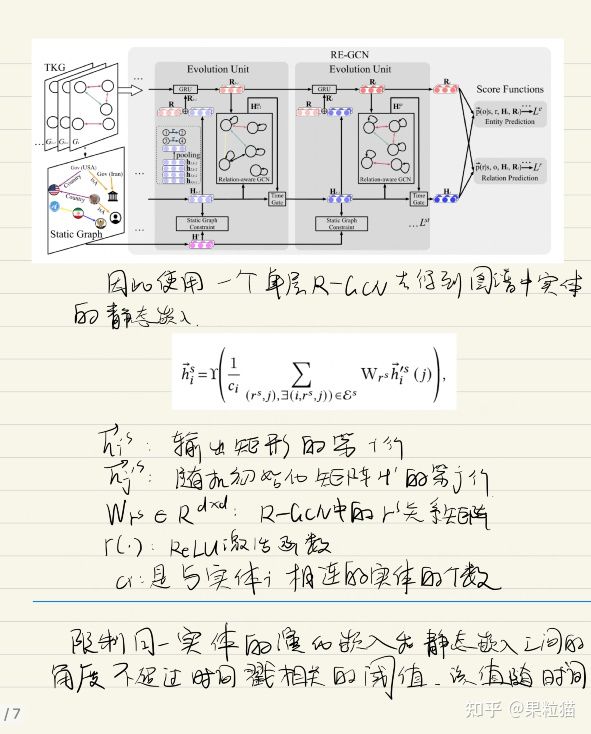 RE-GCN
TKG
Evolution Unit
Evolution Unit
Score Functions
GRU
GRU
pooling
Relation-aware GCN
Relation-aware GCN
Time Gate
Time Gate
Static Graph Constraint
Static Graph Constraint
Entity Prediction
Relation Prediction
Gov (USA)
Gov (Iran)
Country
Country
Static Graph
因此使用一个单层R-GCN去得到图谱中实体
的静态嵌入.
h⃗ᵢˢ = Υ( 1/cᵢ ∑_{(rˢ,j),∃(i,rˢ,j)∈ℰˢ} W_{rˢ} h⃗ᵢ′ˢ(j) ),
h⃗ᵢˢ: 输出矩形的第i行
h⃗ⱼ′ˢ: 随机初始化矩阵H'的第j行
W_{rˢ} ∈ R^{d×d}: R-GCN中的rˢ关系矩阵
r(·): ReLU激活函数
cᵢ: 是与实体i相连的实体的个数
限制同一实体的演化嵌入和静态嵌入之间的
角度不超过时间戳相关的阈值. 该值随时间
/7
知乎 @果粒猫